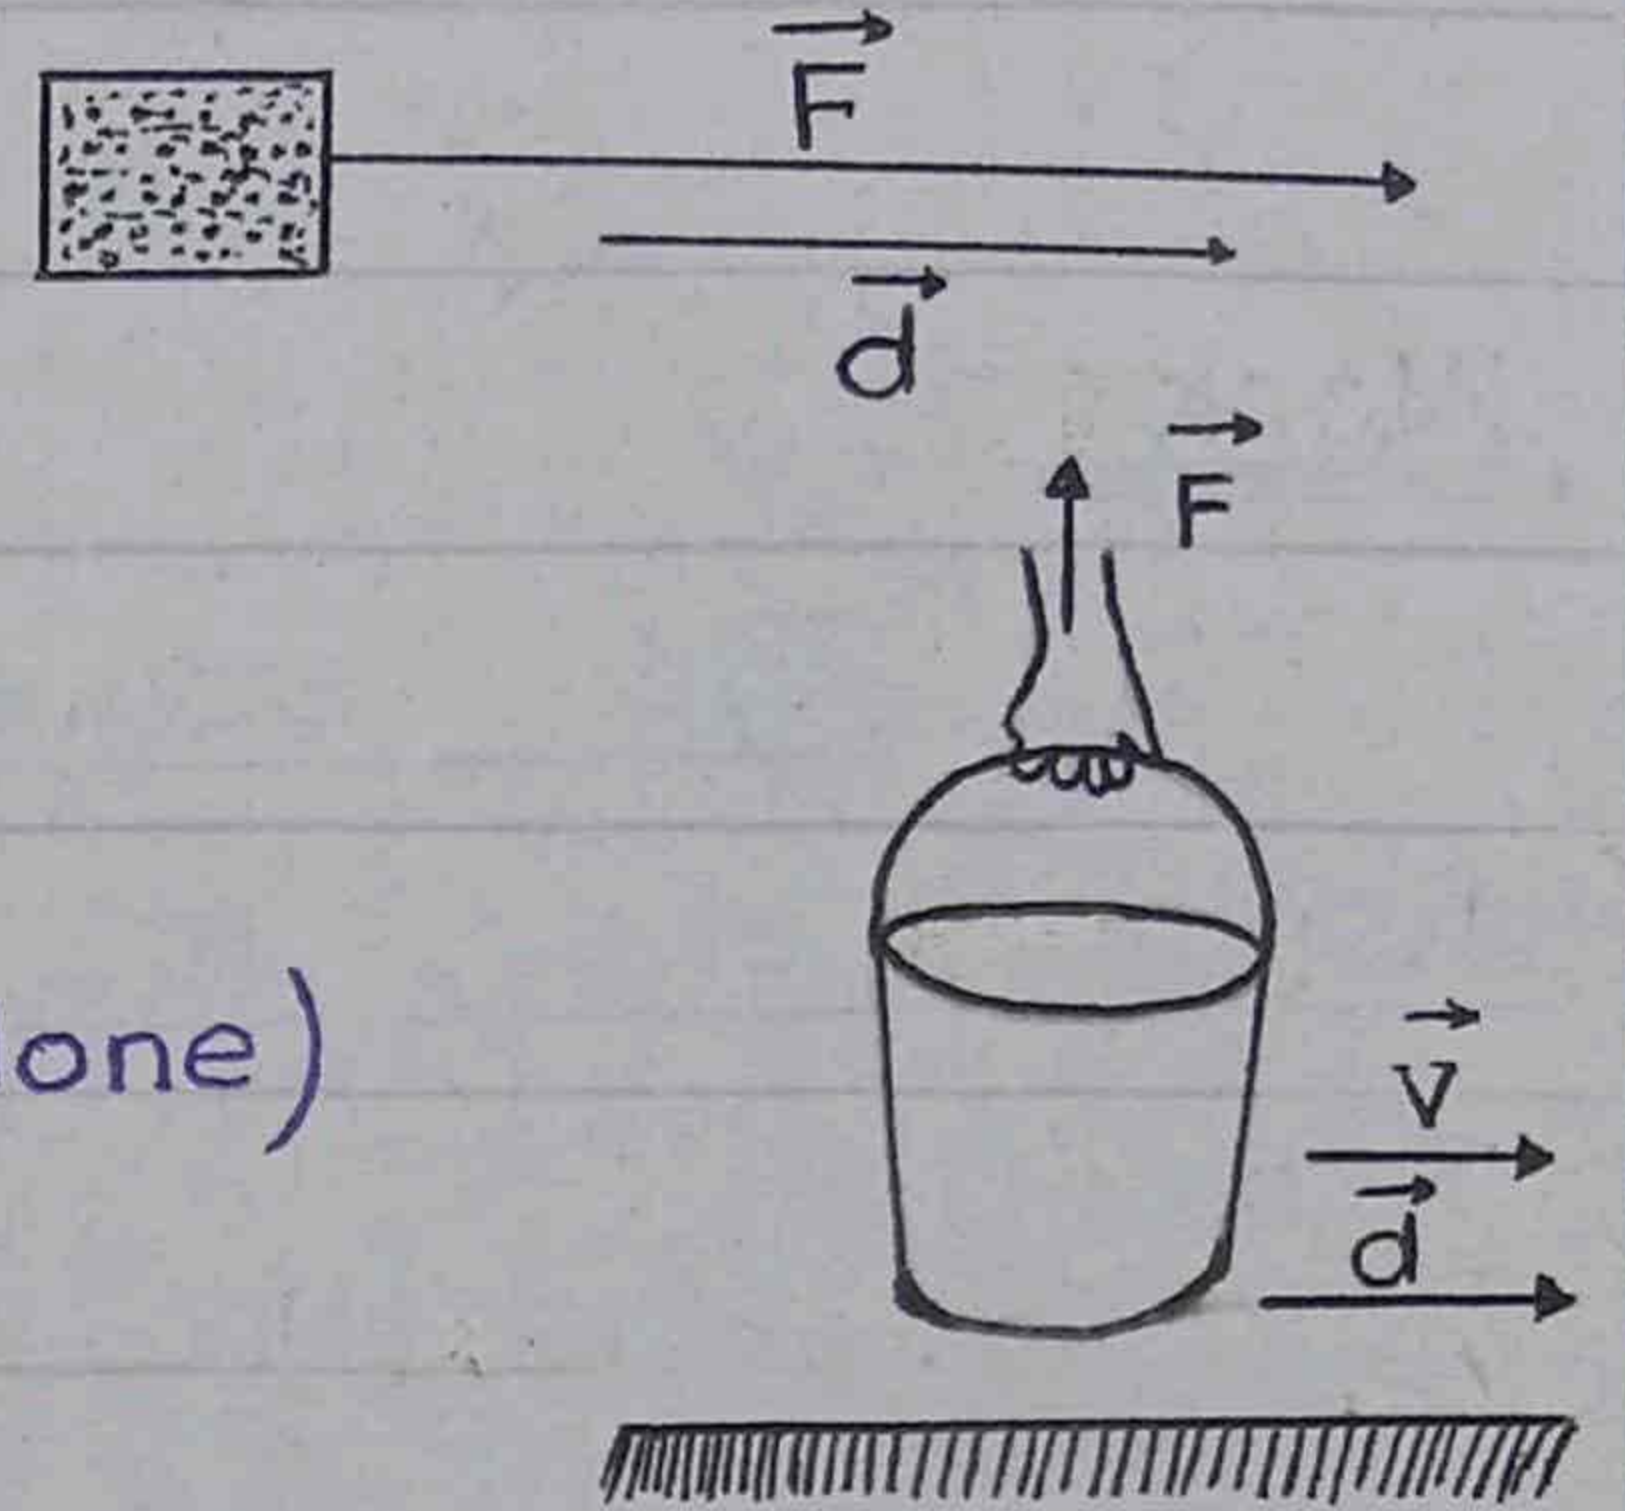 F
d
F
one)
v
d